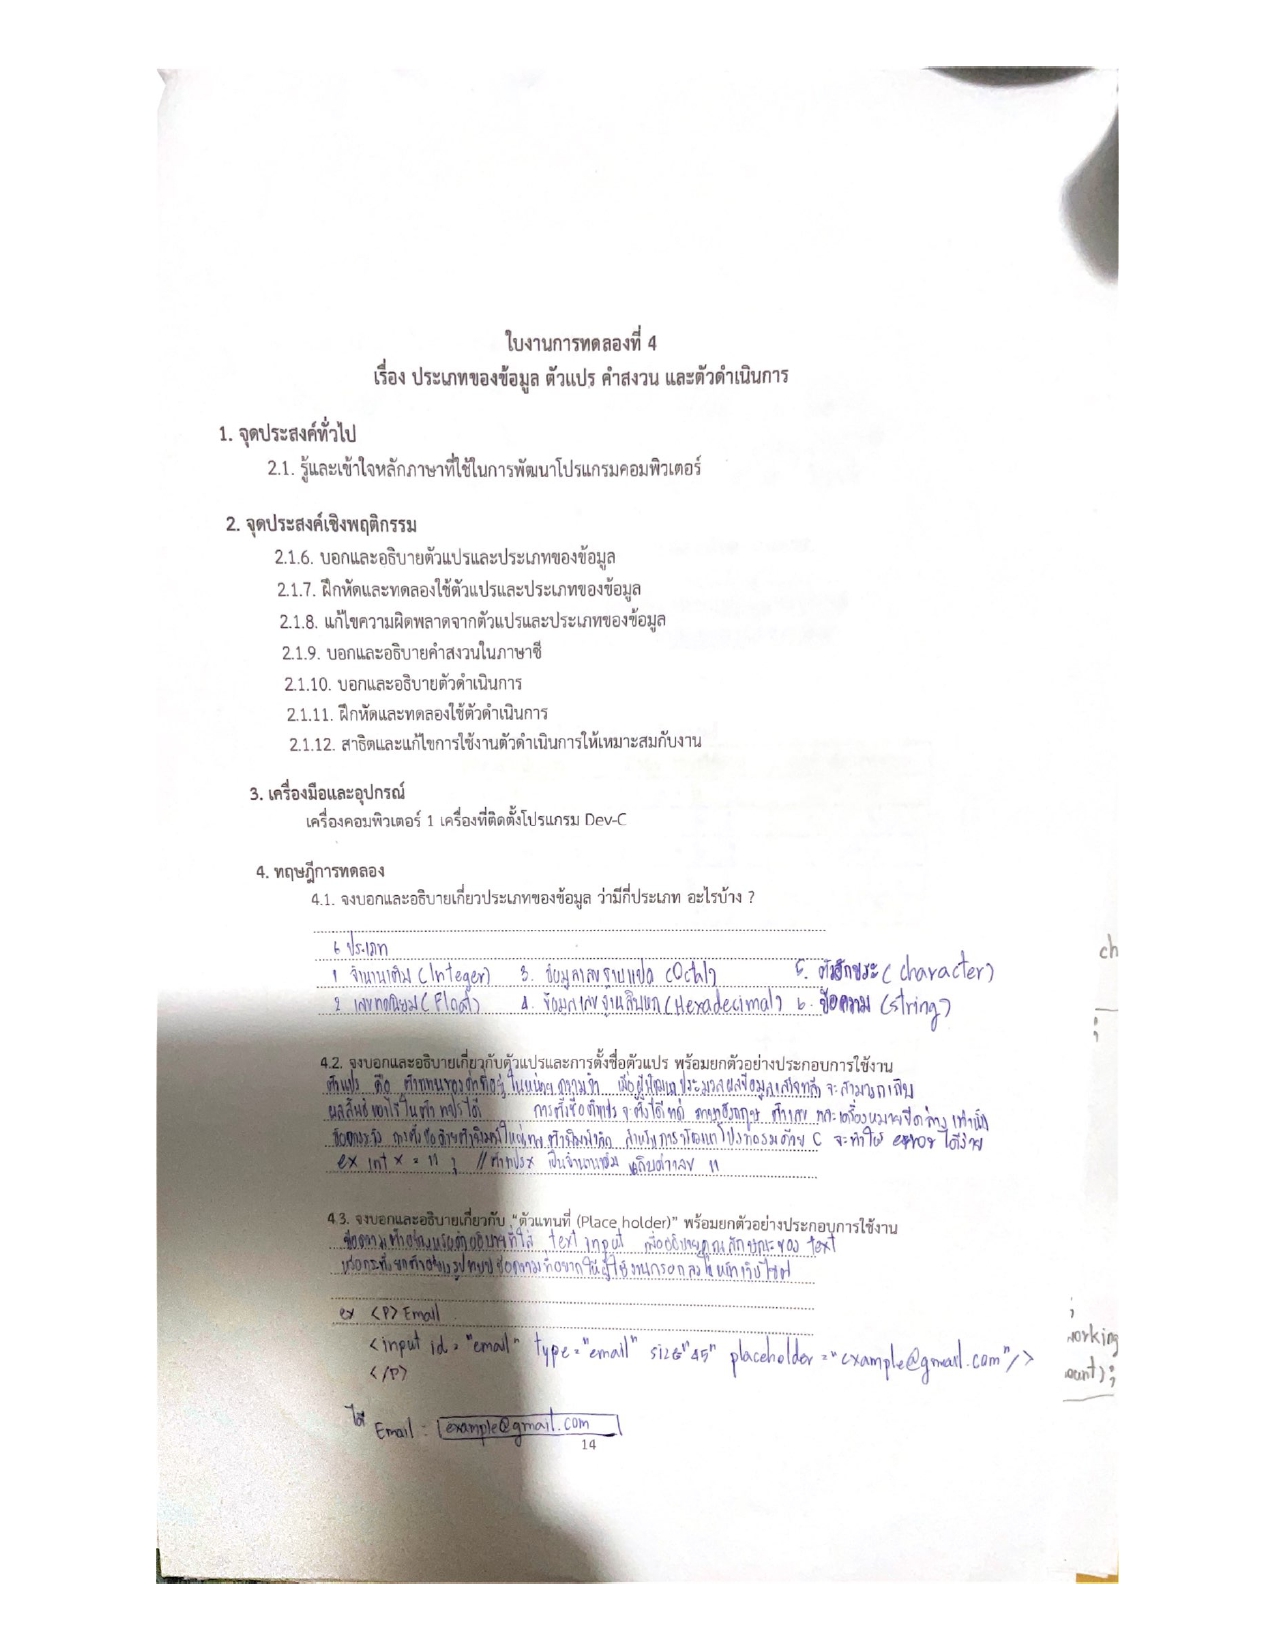 ใบงานการทดลองที่ 4
เรื่อง ประเภทของข้อมูล ตัวแปร คำสงวน และตัวดำเนินการ
1. จุดประสงค์ทั่วไป
2.1. รู้และเข้าใจหลักภาษาที่ใช้ในการพัฒนาโปรแกรมคอมพิวเตอร์
2. จุดประสงค์เชิงพฤติกรรม
2.1.6. บอกและอธิบายตัวแปรและประเภทของข้อมูล
2.1.7. ฝึกหัดและทดลองใช้ตัวแปรและประเภทของข้อมูล
2.1.8. แก้ไขความผิดพลาดจากตัวแปรและประเภทของข้อมูล
2.1.9. บอกและอธิบายคำสงวนในภาษาซี
2.1.10. บอกและอธิบายตัวดำเนินการ
2.1.11. ฝึกหัดและทดลองใช้ตัวดำเนินการ
2.1.12. สาธิตและแก้ไขการใช้งานตัวดำเนินการให้เหมาะสมกับงาน
3. เครื่องมือและอุปกรณ์
เครื่องคอมพิวเตอร์ 1 เครื่องที่ติดตั้งโปรแกรม Dev-C
4. ทฤษฎีการทดลอง
4.1. จงบอกและอธิบายเกี่ยวประเภทของข้อมูล ว่ามีกี่ประเภท อะไรบ้าง ?
6 ประเภท
1 จำนวนเต็ม (Integer) 3. ข้อมูลเลขฐานแปด (Octal) 5. ตัวอักขระ (character)
2 เลขทศนิยม (Float) 4. ข้อมูลเลขฐานสิบหก (Hexadecimal) 6. ข้อความ (string)
4.2. จงบอกและอธิบายเกี่ยวกับตัวแปรและการตั้งชื่อตัวแปร พร้อมยกตัวอย่างประกอบการใช้งาน
ตัวแปร คือ ในหน่วยความจำ เมื่อ ประมวลผลข้อมูลเสร็จแล้ว จะสามารถเก็บ
ผลลัพธ์เอาไว้ในตัวแปรได้ การตั้งชื่อตัวแปร จะตั้งได้แค่ ภาษาอังกฤษ ตัวเลข และเครื่องหมายขีดล่าง เท่านั้น
ข้อควรระวัง การตั้งชื่อด้วยตัวพิมพ์ใหญ่และตัวพิมพ์เล็ก สำหรับการพัฒนาโปรแกรมด้วย C จะทำให้ error ได้ง่าย
ex int x = 11 ; // ตัวแปร x เป็นจำนวนเต็ม เก็บค่าเลข 11
4.3. จงบอกและอธิบายเกี่ยวกับ "ตัวแทนที่ (Place holder)" พร้อมยกตัวอย่างประกอบการใช้งาน
ข้อความตัวอย่างหรือคำอธิบายที่ใส่ text input เพื่ออธิบายคุณลักษณะของ text
หรือกระทั่งยกตัวอย่างรูปแบบข้อความที่อยากให้ผู้ใช้งานกรอกลงในหน้าเว็บไซต์
ex <P> Email
<input id = "email" type = "email" size "45" placeholder = "example@gmail.com"/>
</P>
ได้ Email : example@gmail.com
14
ch
;
;
working
ount);